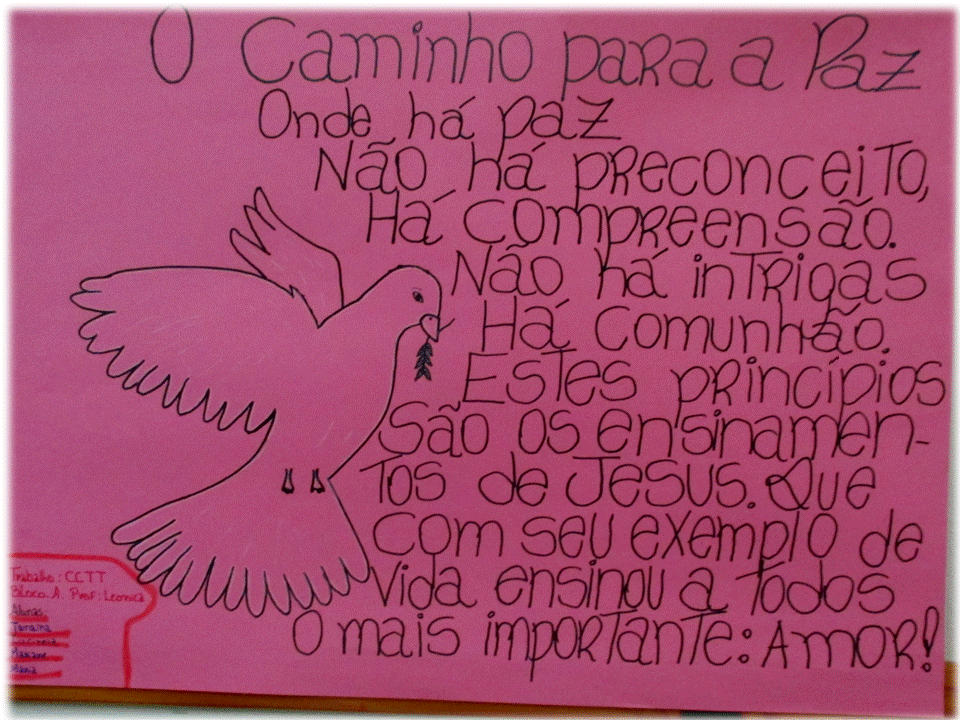 O Caminho para a Paz
Onde há paz
Não há preconceito,
Há compreensão.
Não há intrigas
Há comunhão.
Estes princípios
São os ensinamen-
tos de Jesus. Que
com seu exemplo de
vida ensinou a todos
O mais importante: Amor!
Trabalho: CCTT
Bloco. A. Prof: Leonice
Alunas:
Janaina
Maria